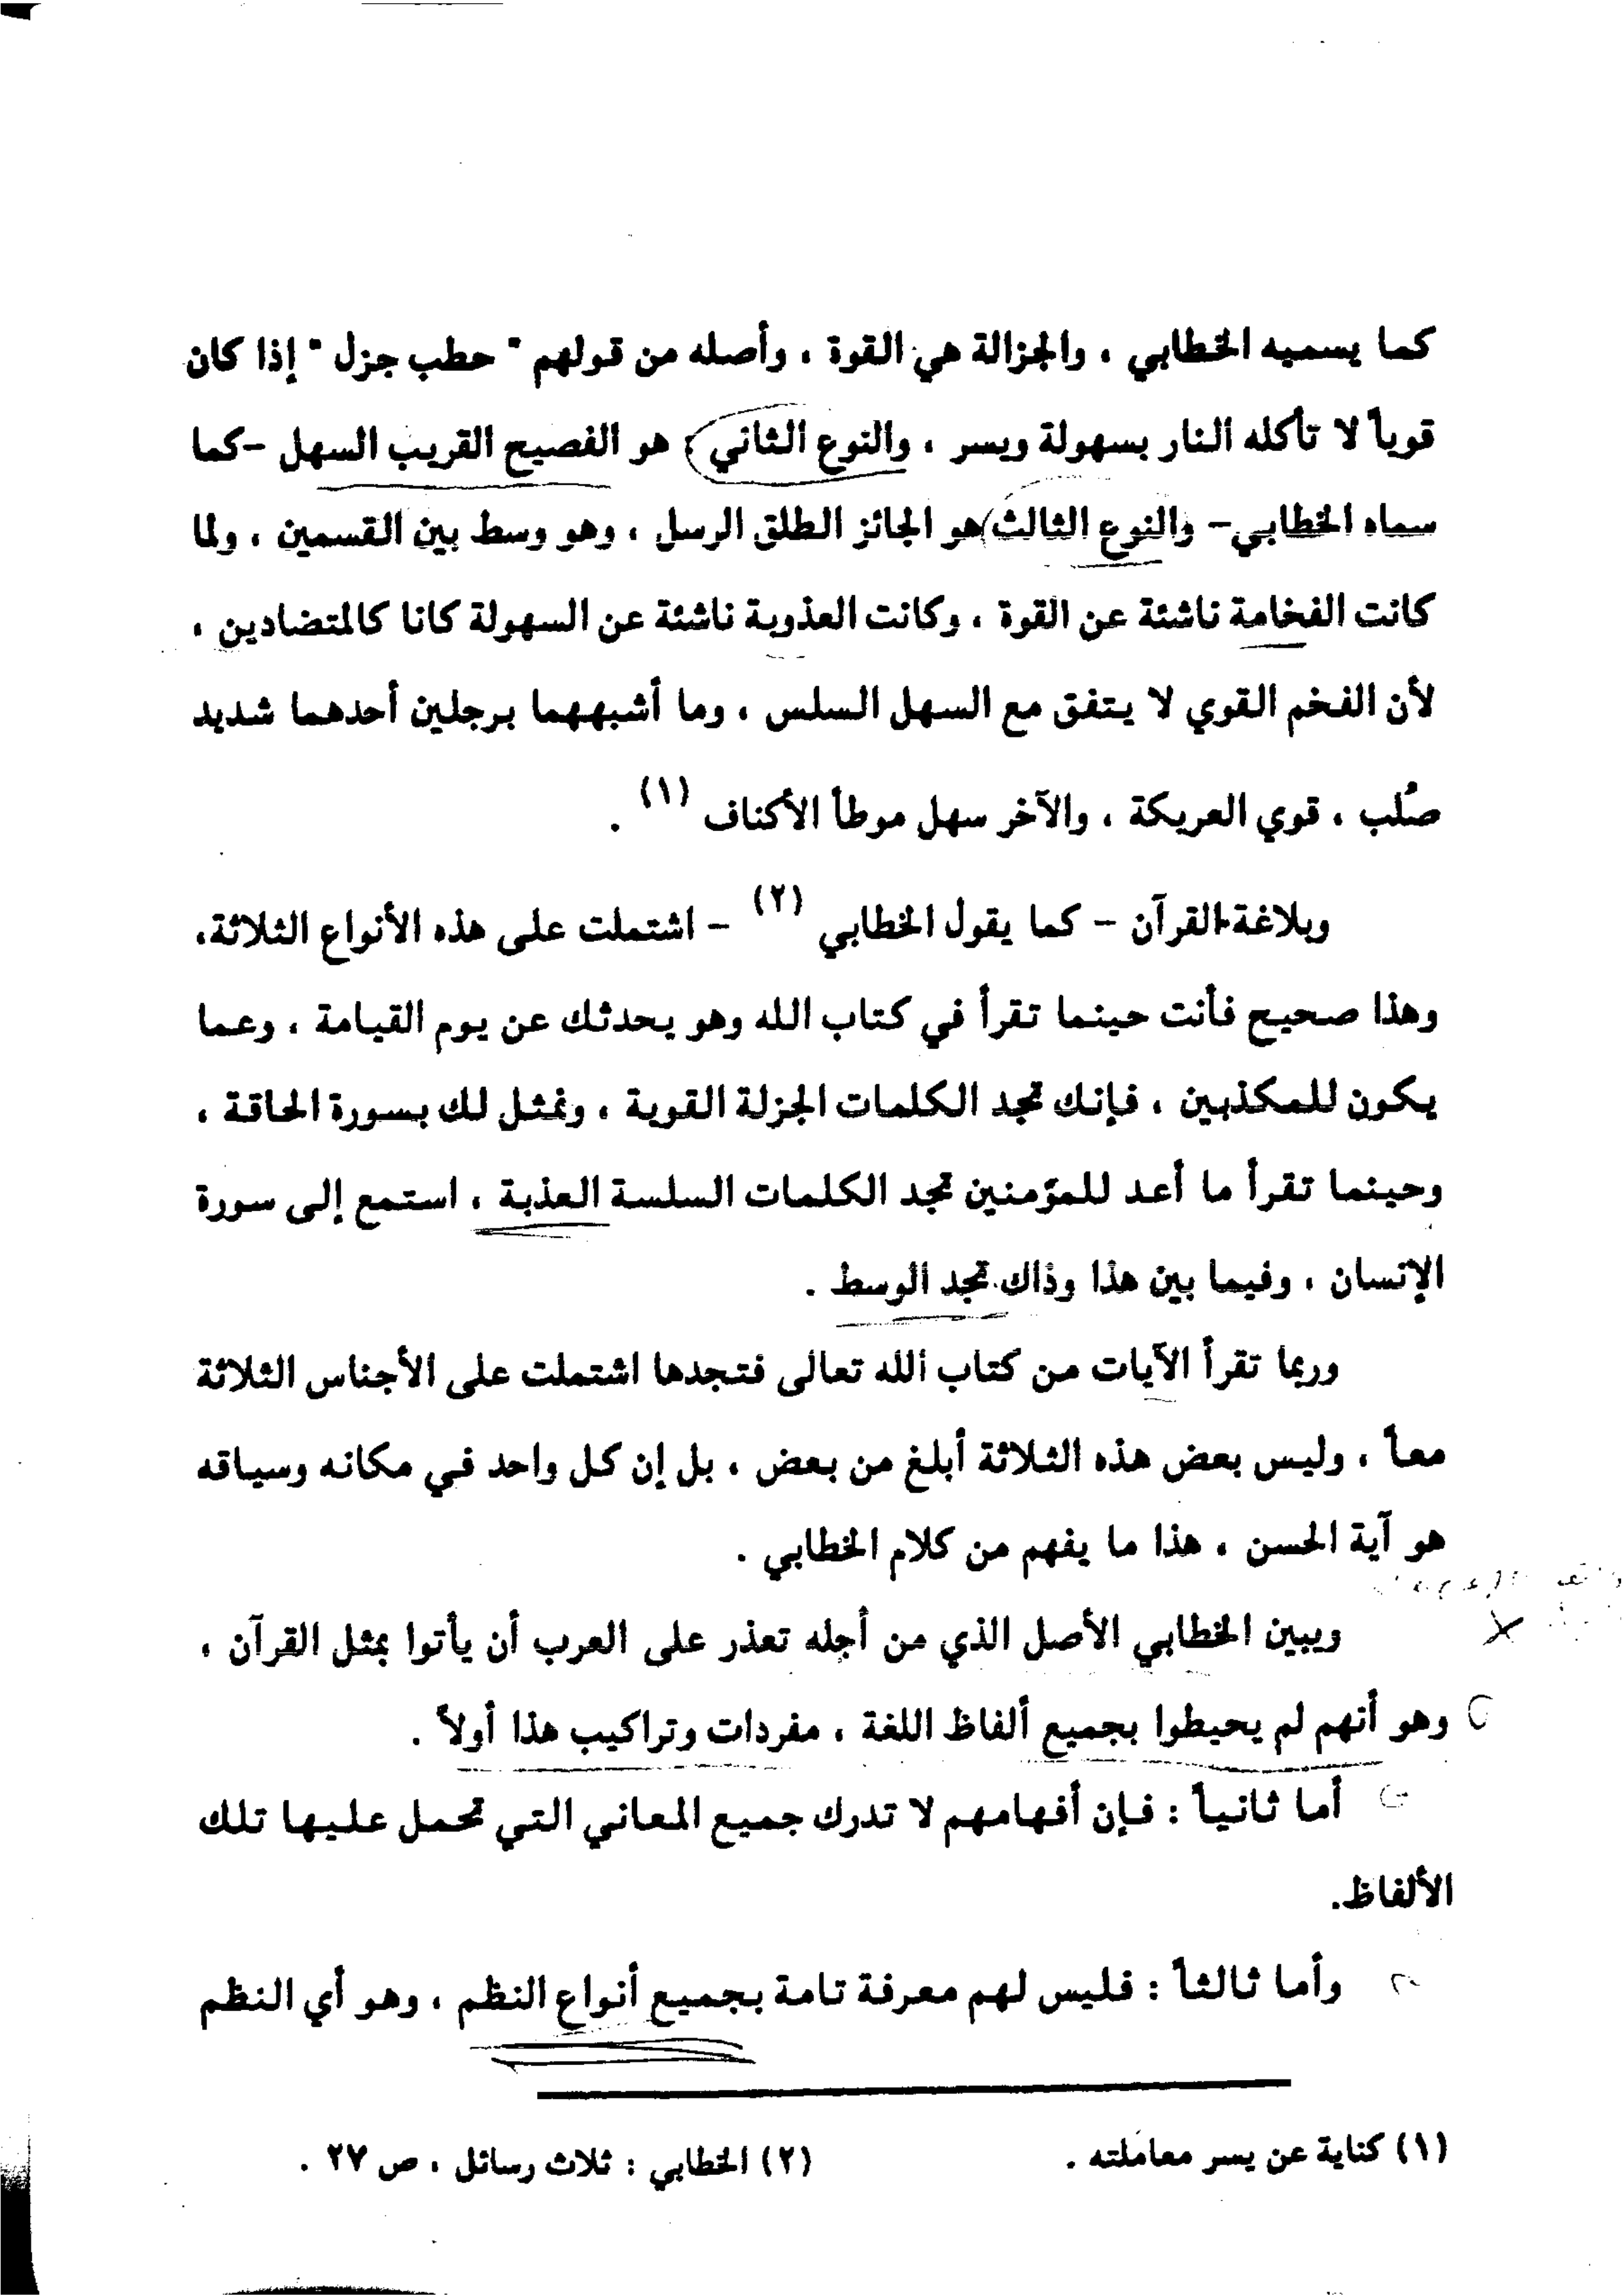 كما يسميه الخطابي ، والجزالة هي القوة ، وأصله من قولهم " حطب جزل " إذا كان
قوياً لا تأكله النار بسهولة ويسر ، والنوع الثاني : هو الفصيح القريب السهل -كما
سماه الخطابي- والنوع الثالث هو الجائز الطلق الرسل ، وهو وسط بين القسمين ، ولما
كانت الفخامة ناشئة عن القوة ، وكانت العذوبة ناشئة عن السهولة كانا كالمتضادين ،
لأن الفخم القوي لا يتفق مع السهل السلس ، وما أشبههما برجلين أحدهما شديد
صُلب ، قوي العريكة ، والآخر سهل موطأ الأكناف (١) .
وبلاغة القرآن - كما يقول الخطابي (٢) - اشتملت على هذه الأنواع الثلاثة،
وهذا صحيح فأنت حينما تقرأ في كتاب الله وهو يحدثك عن يوم القيامة ، وعما
يكون للمكذبين ، فإنك تجد الكلمات الجزلة القوية ، ونمثل لك بسورة الحاقة ،
وحينما تقرأ ما أعد للمؤمنين تجد الكلمات السلسة العذبة ، استمع إلى سورة
الإنسان ، وفيما بين هذا وذاك تجد الوسط .
وربما تقرأ الآيات من كتاب الله تعالى فتجدها اشتملت على الأجناس الثلاثة
معاً ، وليس بعض هذه الثلاثة أبلغ من بعض ، بل إن كل واحد في مكانه وسياقه
هو آية الحسن ، هذا ما يفهم من كلام الخطابي .
ويبين الخطابي الأصل الذي من أجله تعذر على العرب أن يأتوا بمثل القرآن ،
وهو أنهم لم يحيطوا بجميع ألفاظ اللغة ، مفردات وتراكيب هذا أولاً .
أما ثانياً : فإن أفهامهم لا تدرك جميع المعاني التي تحمل عليها تلك
الألفاظ.
وأما ثالثاً : فليس لهم معرفة تامة بجميع أنواع النظم ، وهو أي النظم
(١) كناية عن يسر معاملته .
(٢) الخطابي : ثلاث رسائل ، ص ٢٧ .